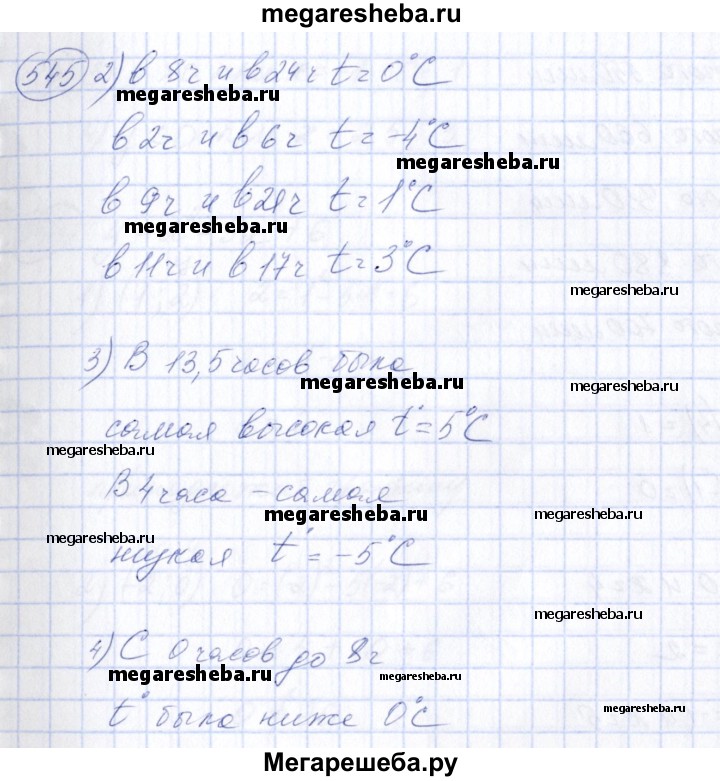 megaresheba.ru
545 2) в 8ч и в 24ч t = 0°C
megaresheba.ru
в 2ч и в 6ч t = -4°C
megaresheba.ru
в 9ч и в t = 1°C
megaresheba.ru
в 11ч и в 17ч t = 3°C
megaresheba.ru
3) В 13,5 часов была
megaresheba.ru megaresheba.ru
самая высокая t° = 5°C
megaresheba.ru
В 4 часа - самая
megaresheba.ru megaresheba.ru
низкая t° = -5°C
megaresheba.ru
4) С 0 часов до 8ч
megaresheba.ru megaresheba.ru
t° была ниже 0°C
megaresheba.ru
Мегарешеба.ру